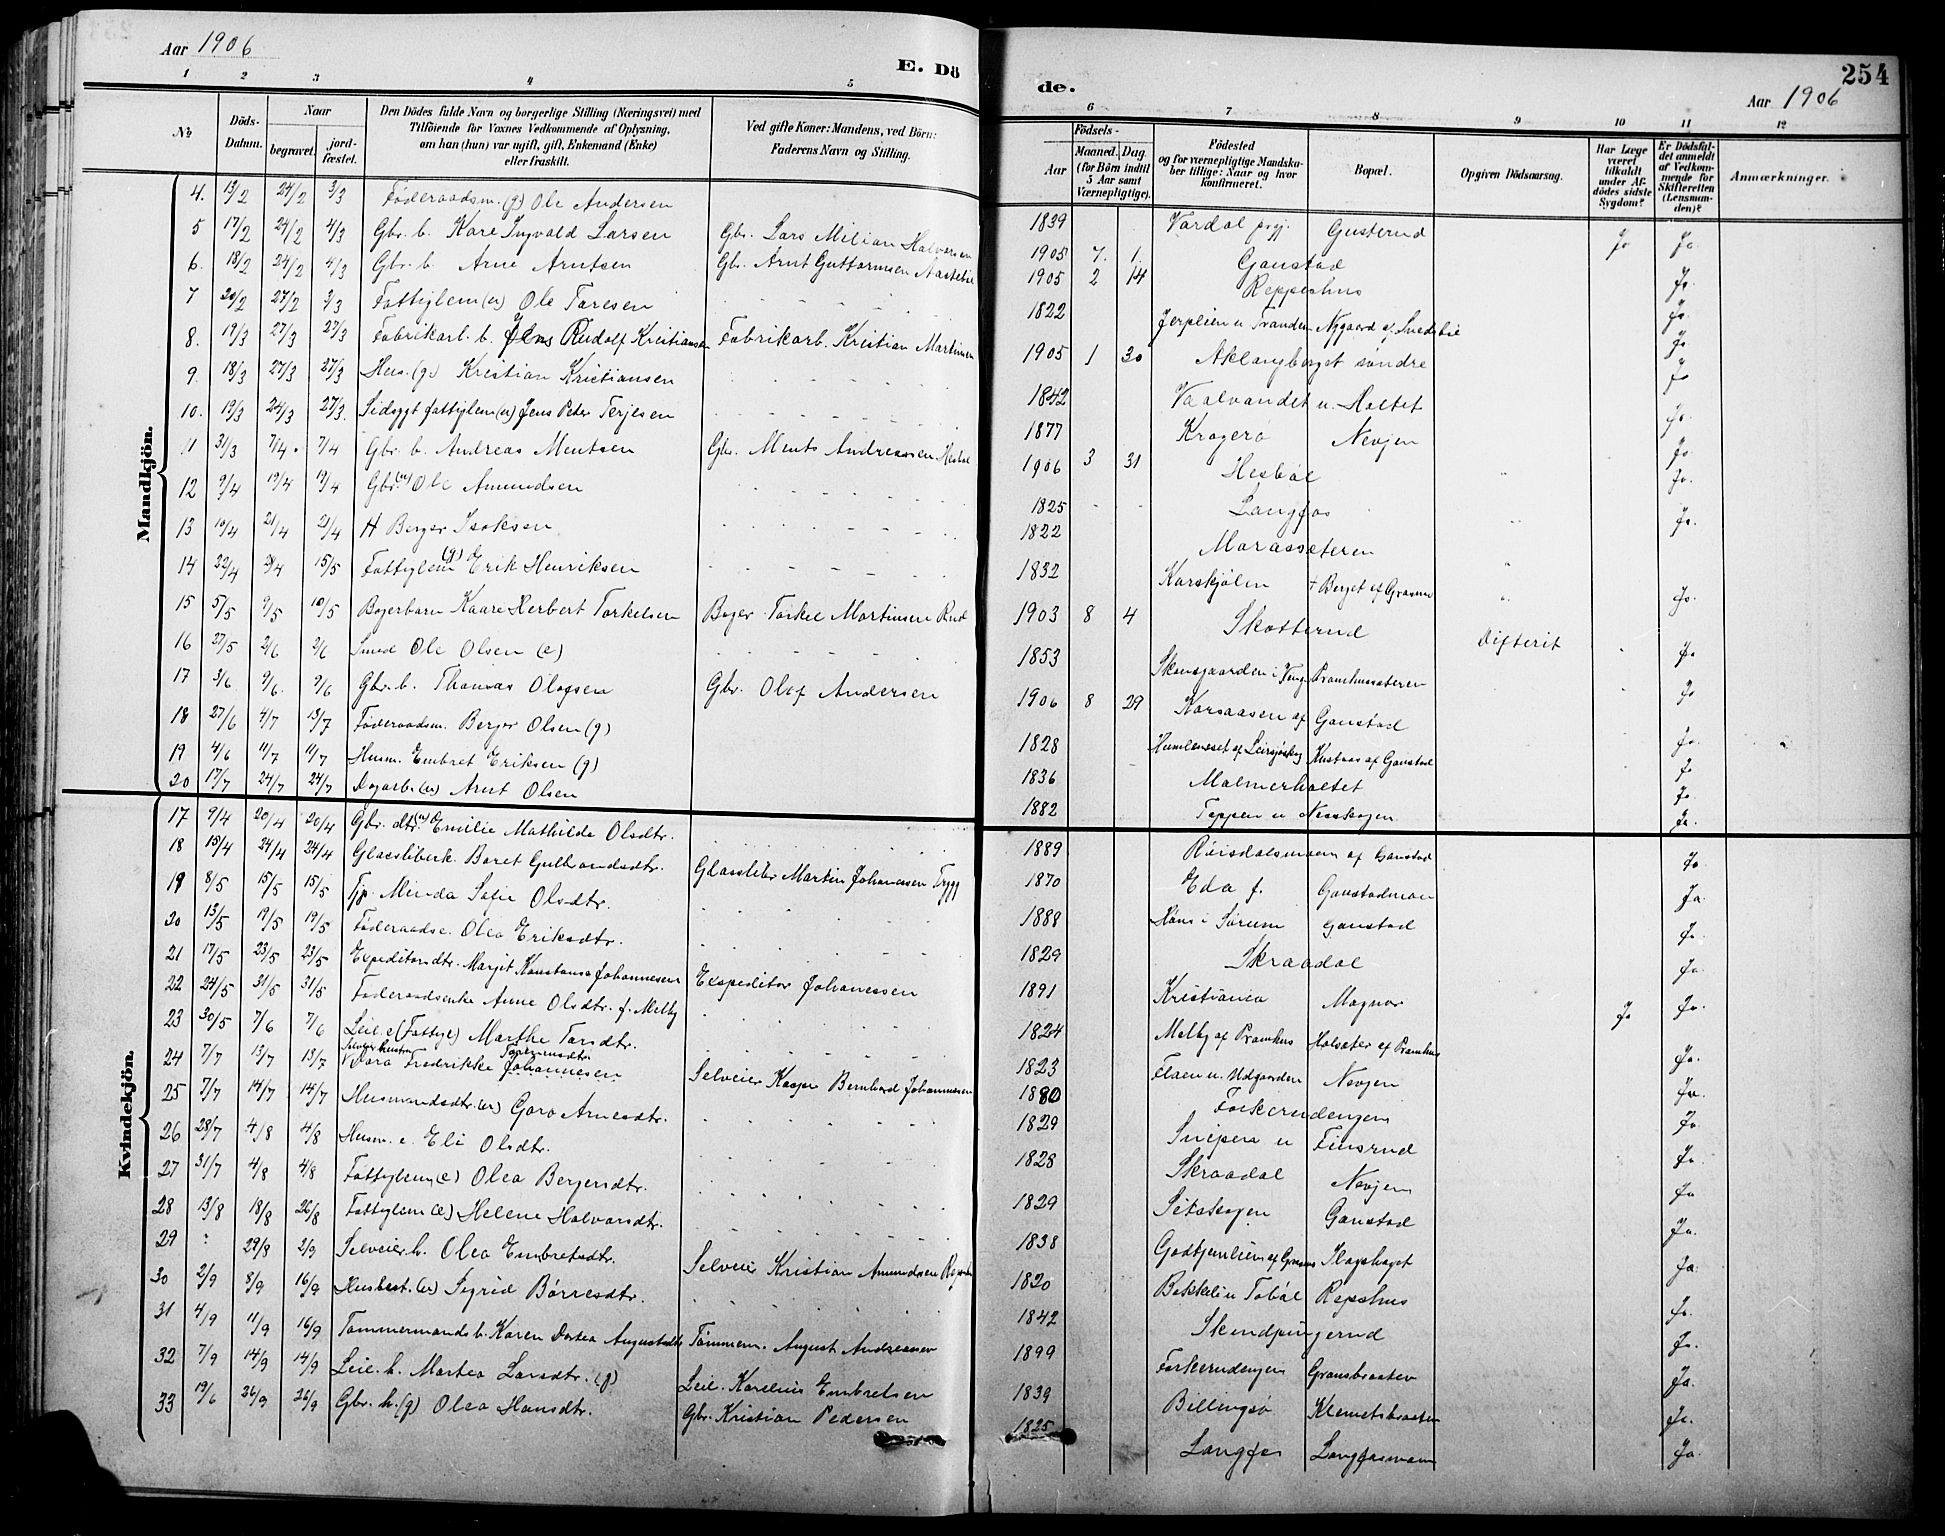 Aar 1906
E. Dö
1 2 3 4 5
No
Döds-Datum.
Naar
begravet.
jord-fæstet.
Den Dödes fulde Navn og borgerlige Stilling (Næringsvei) med
Tilföiende for Voxnes Vedkommende af Oplysning,
om han (hun) var ugift, gift, Enkemand (Enke)
eller fraskilt.
Ved gifte Koner: Mandens, ved Börn:
Faderens Navn og Stilling.
Mandkjön.
4. 13/2 24/2 3/3 Føderaadsm. (g) Ole Andersen
5 17/2 24/2 4/3 Gbr. b. Kare Ingvald Larsen Gbr. Lars Milian Halvorsen
6. 18/2 24/2 4/3 Gbr. b. Arne Arntsen Gbr. Arnt Guttormsen
7 20/2 27/2 3/3 Fattiglem (u) Ole Taresen
8. 19/3 27/3 27/3 Fabrikarb. b. Jens Rudolf Kristiansen Fabrikarb. Kristian Martinsen
9. 18/3 27/3 27/3 Hus. (g.) Kristian Kristiansen
10. 19/3 24/3 27/3. Sidsygt fattiglem (u) Jens Peter Terjesen
11 31/3 7/4. 7/4 Gbr. b. Andreas Mentsen Gbr. Ments Andreassen
12 9/4 19/4 19/4 Gbr. Ole Amundsen
13 10/4 21/4 21/4 Berger Isaksen
14 22/4 28/4 15/5 Fattiglem (g) Erik Henriksen
15 5/5 9/5 10/5 Bagerbarn Kaare Herbert Torkelsen Bager Torkel Martinsen Rud
16 27/5 2/6 2/6 Smed Ole Olsen (e)
17 3/6 9/6. 9/6 Gbr. b. Thomas Olafsen Gbr. Olof Andersen
18 27/6 4/7 13/7 Føderaadsm. Berger Olsen (g)
19 4/6 11/7 11/7 Husm. Embret Eriksen (g)
20 17/7 24/7 24/7 Dagarb. (u) Arnt Olsen
Kvindekjön.
17 9/4 20/4 20/4 Gbr. dtr. (u) Emilie Mathilde Olsdtr.
18 15/4 24/4 24/4 Glassliberk. Baret Gulbrandsdtr. Glasslibr Martin Johanessen Trygg
19 8/5 15/5 15/5 Tjp. Minda Sofie Olsdtr.
20 13/5 19/5 19/5 Føderaadse. Olea Eriksdtr.
21 17/5 23/5 23/5 Expeditørsdtr. Margit Konstanse Johannesen Expeditør Johanessen
22 24/5 31/5 31/5 Føderaadsenke Anne Olsdtr. f. Melby
23 30/5 7/6 7/6 Leil. e (Fattigl) Marthe Tarsdtr.
24 7/7 13/7 13/7 Fredrikke Johannesen Selveier Kasper Bernhard Johannesen
25 7/7 14/7 14/7 Husmandsdtr. (u) Goro Arnesdtr.
26 28/7 4/8 4/8 Husm. e. Eli Olsdtr.
27 31/7 4/8 4/8 Fattiglem (e) Olea Bergersdtr.
28 13/8 18/8 26/8 Fattiglem (e) Helene Halvorsdtr.
29 ? 29/8 2/9 Selveier h. Olea Embretsdtr. Selveier Kristian Amundsen
30 2/9 8/9 16/9 Husbest. (u) Sigrid Børresdtr.
31 4/9 11/9 16/9 Tømmermands b. Karen Dortea Augustsdtr Tømmerm. August Andreassen
32 7/9 14/9 14/9 Leil. h. Martea Larsdtr. (g) Leil. Karelius Embretsen
33 19/6 26/9 26/9 Gbr. h. (g) Olea Hansdtr. Gbr. Kristian Pedersen
de.
254
Aar 1906
6 7 8 9 10 11 12
Födsels-
Aar
Maaned. Dag.
(for Börn indtil
5 Aar samt
Værnepligtige).
Födested
og for værnepligtige Mandska-
ber tillige: Naar og hvor
konfirmeret.
Bopæl.
Opgiven Dödsaarsag.
Har Læge
været
tilkaldt
under Af-
dödes sidste
Sygdom?
Er Dödsfal-
det anmeldt
af Vedkom-
mende for
Skifteretten
(Lensman-
den)?
Anmærkninger.
1839 Vardal prgj. Gusterud Ja Ja.
1905 7. 1. Gaustad Ja.
1905 2 14 Reppeshus Ja.
1822 Nygaard af Ja
1905 1 30 Aklangberget søndre Ja
1842 Vaalvandet u. Holtet Ja.
1877 Kragerø Nevjen Ja.
1906 3 31 Hesbøl Ja.
1825 Langfos Ja.
1822 Marassæteren
1832 Karskjølen Berget af Grasmo Ja.
1903 8 4 Skotterud Difterit Ja
1853 Pramhussæteren Ja
1906 8 29 Karsaasen af Gaustad Ja.
1828 Ja
1836 Malmerholtet Ja.
1882 Toppen u Nesskogen Ja.
1889 Røisdalsmoen af Gaustad Ja
1870 Eda f. Gaustadmoen Ja.
1888 Høns i Sørum Gaustad Ja.
1829 Skraadal Ja.
1891 Kristiania Magnor Ja Ja.
1824 Melby af Pramhus Holsæter af Pramhus Ja.
1823 Flaen u. Udgaarden Nevjen Ja.
1880 Forkerudengen Ja.
1829 Snipen u Finsrud Ja
1828 Skraadal Nevjen Ja
1829 Sitskogen Gaustad Ja.
1838 Ja.
1820 Bekkelin Tobøl Repshus Ja.
1842 Skendpungerud Ja.
1899 Forkerudengen Gransbraaten Ja.
1839 Billingsø Klemetsbraaten Ja.
1825 Langfos Langfosmoen Ja.